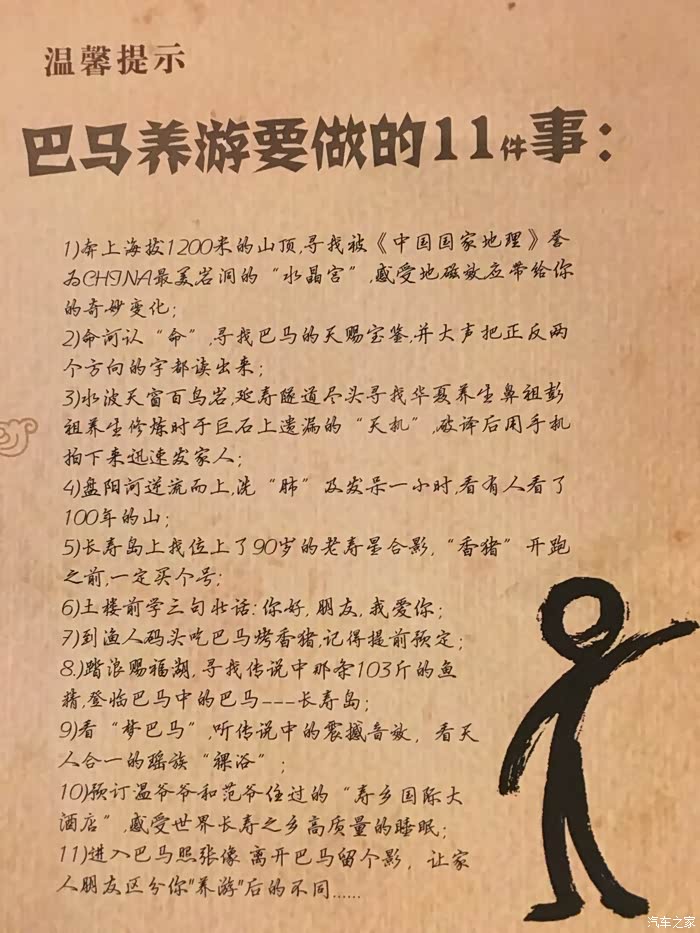 温馨提示
巴马养游要做的11件事：
1)奔上海拔1200米的山顶,寻找被《中国国家地理》誉
为CHINA最美岩洞的“水晶宫”,感受地磁效应带给你
的奇妙变化；
2)命河认“命”,寻找巴马的天赐宝鉴,并大声把正反两
个方向的字都读出来；
3)水波天窗百鸟岩,延寿隧道尽头寻找华夏养生鼻祖彭
祖养生修炼时于巨石上遗漏的“天机”,破译后用手机
拍下来迅速发家人；
4)盘阳河逆流而上,洗“肺”及发呆一小时,看有人看了
100年的山；
5)长寿岛上找位上了90岁的老寿星合影,“香猪”开跑
之前,一定买个号；
6)土楼前学三句壮话：你好,朋友,我爱你；
7)到渔人码头吃巴马烤香猪,记得提前预定；
8.)踏浪赐福湖,寻找传说中那条103斤的鱼
精,登临巴马中的巴马---长寿岛；
9)看“梦巴马”,听传说中的震撼音效，看天
人合一的瑶族“裸浴”；
10)预订温爷爷和范爷住过的“寿乡国际大
酒店”,感受世界长寿之乡高质量的睡眠；
11)进入巴马照张像 离开巴马留个影，让家
人朋友区分你"养游"后的不同……
汽车之家